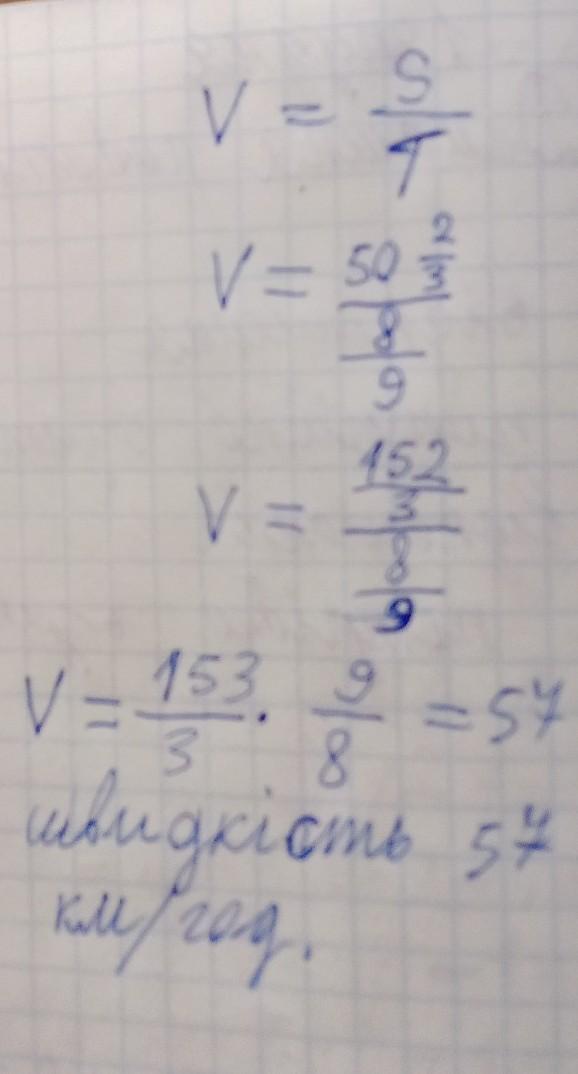 V = S/T
V = (50 2/3)/(8/9)
V = (152/3)/(8/9)
V = 153/3 · 9/8 = 57
швидкість 57
км/год.